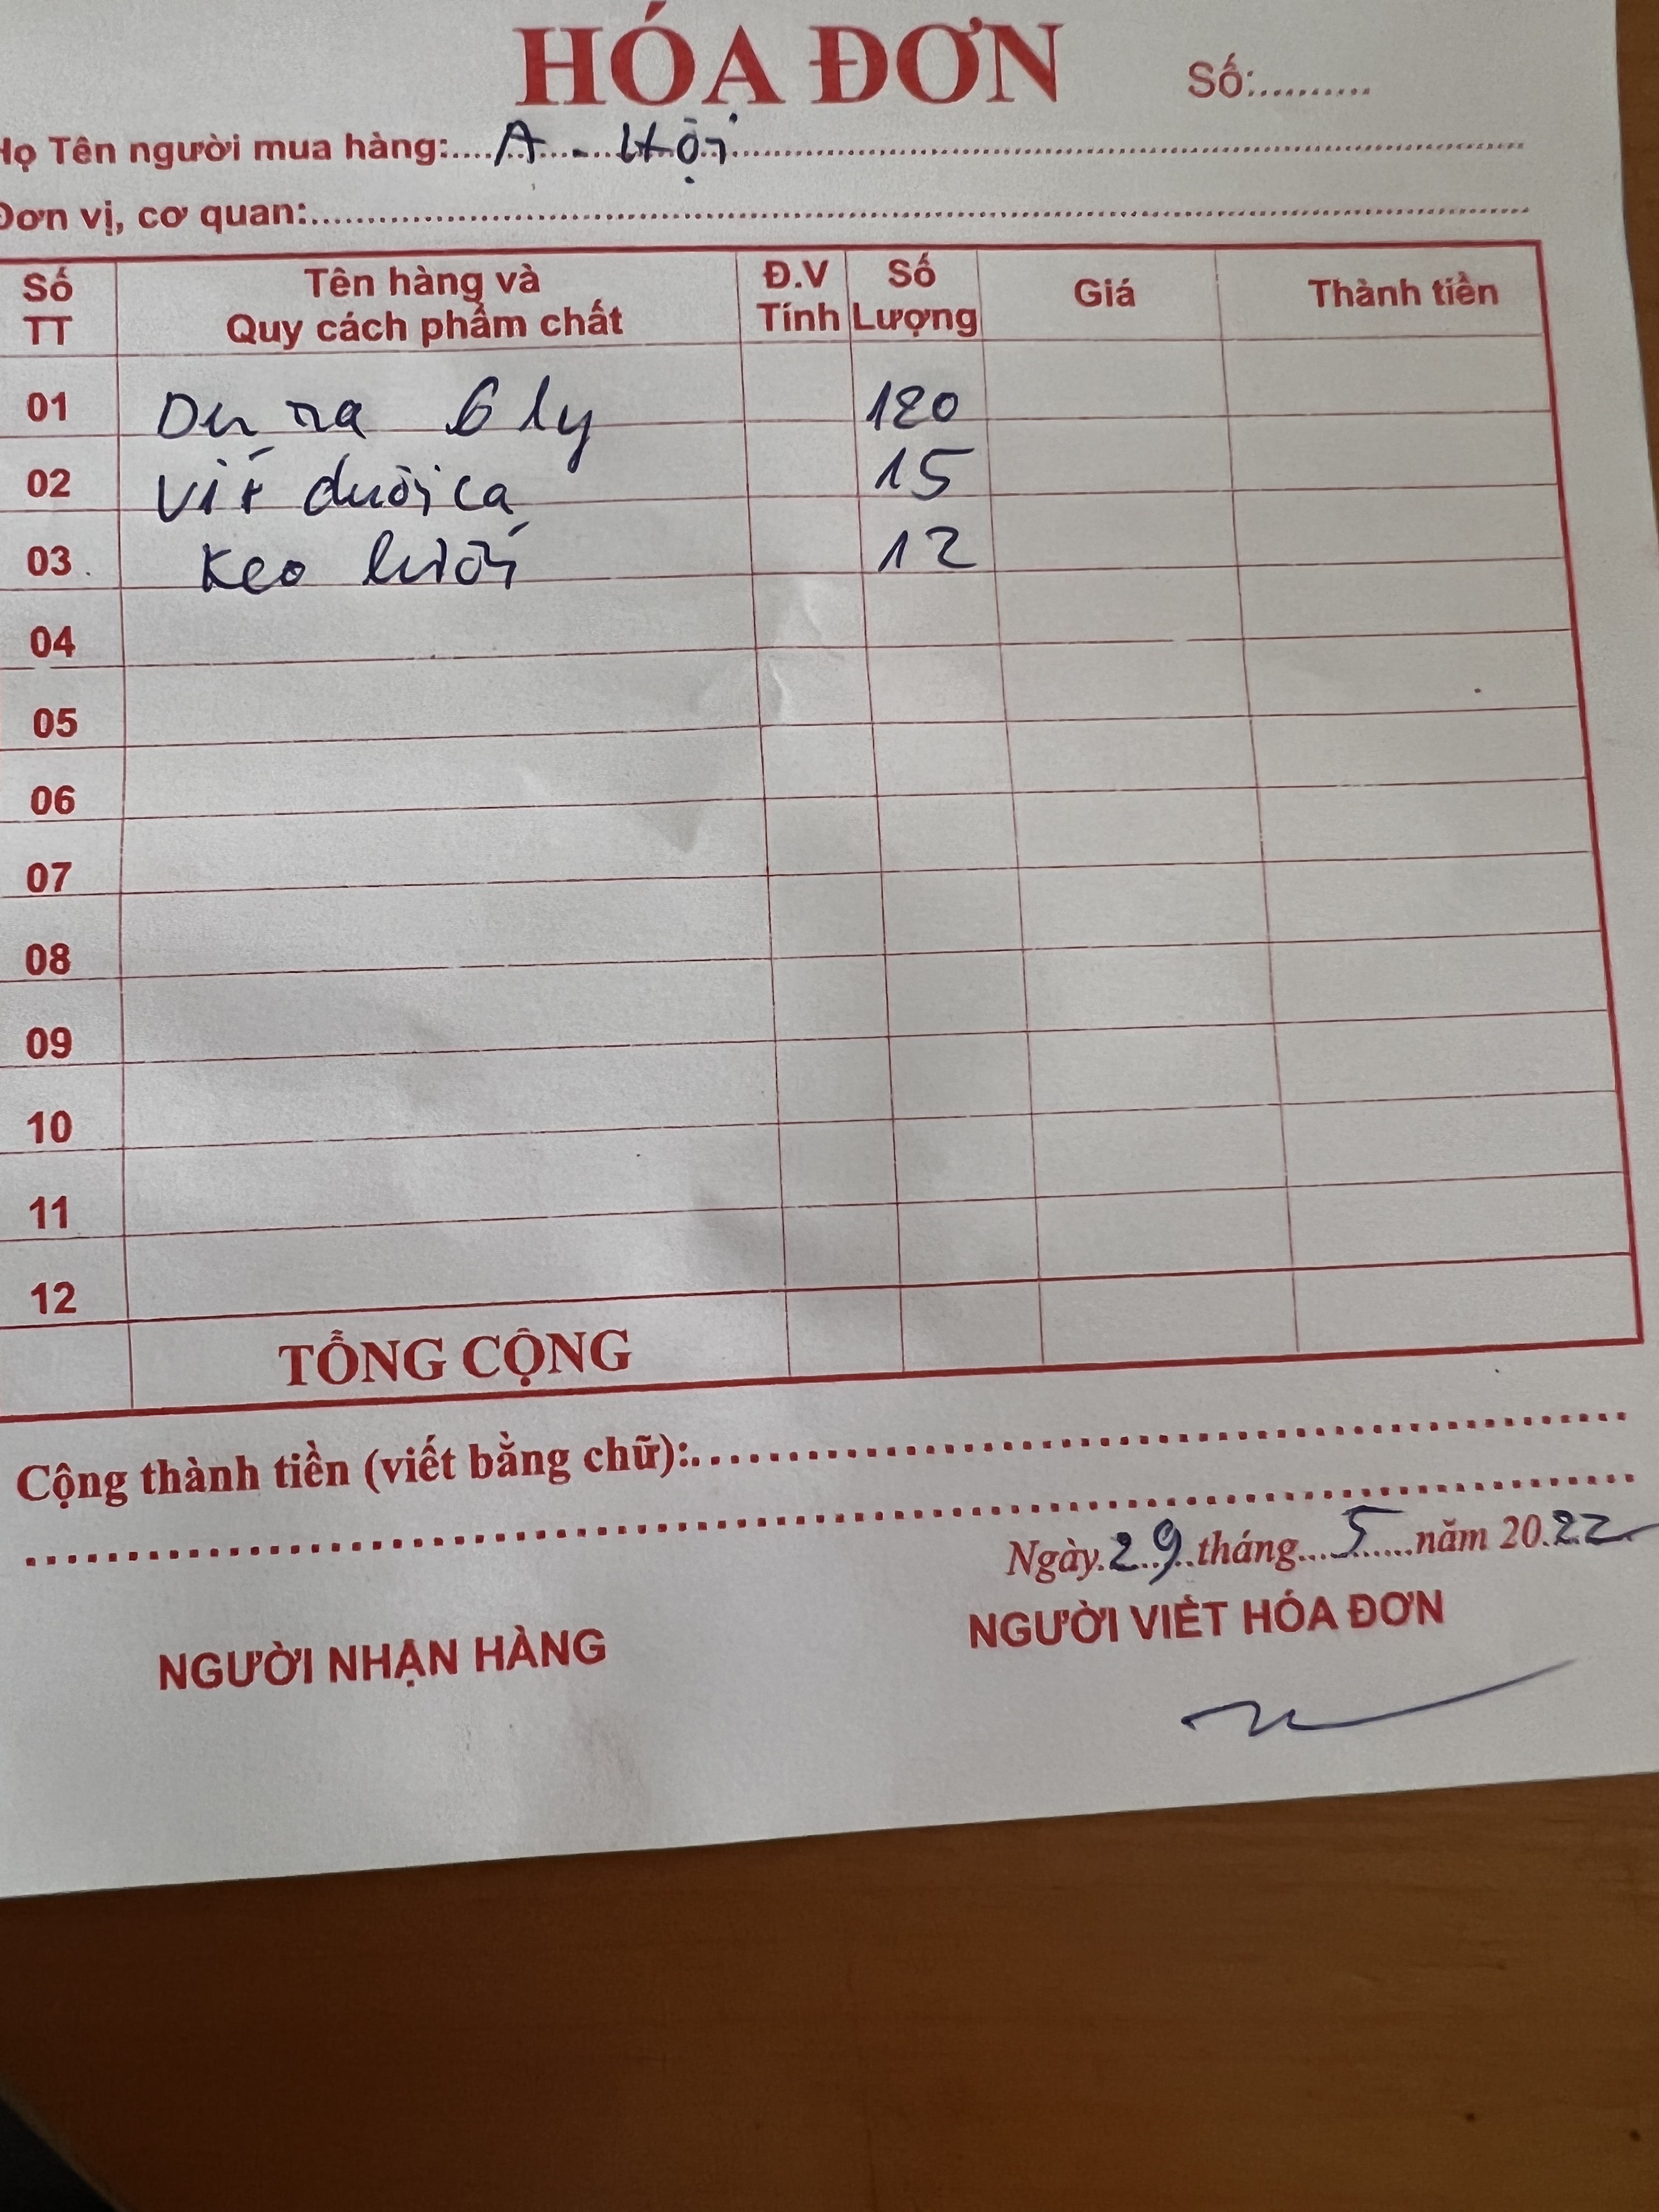 HÓA ĐƠN Số:..........
Họ Tên người mua hàng: A - Hội
Đơn vị, cơ quan:
Số TT Tên hàng và Quy cách phẩm chất Đ.V Tính Số Lượng Giá Thành tiền
01 Du ra 6 ly 120
02 Vít đuôi cá 15
03 Keo lưới 12
04
05
06
07
08
09
10
11
12
TỔNG CỘNG
Cộng thành tiền (viết bằng chữ):
Ngày 29 tháng 5 năm 2022
NGƯỜI NHẬN HÀNG NGƯỜI VIẾT HÓA ĐƠN